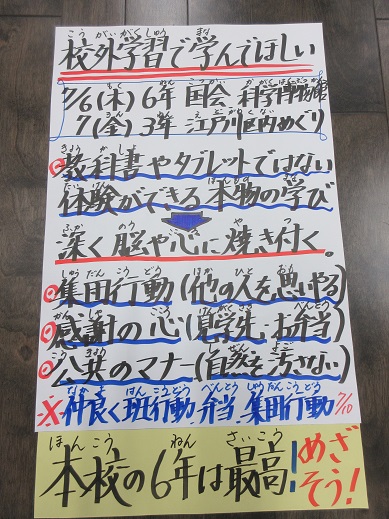 校外学習で学んでほしい
7/6(木) 6年 国会 科学博物館
7(金) 3年 江戸川区内めぐり
◎教科書やタブレットではない
体験ができる本物の学び
深く脳や心に焼き付く。
◎集団行動(他の人を思いやる)
◎感謝の心(見学先、お弁当)
◎公共のマナー(自然を汚さない)
※仲良く班行動、弁当、集団行動 7/10
本校の6年は最高!めざそう!